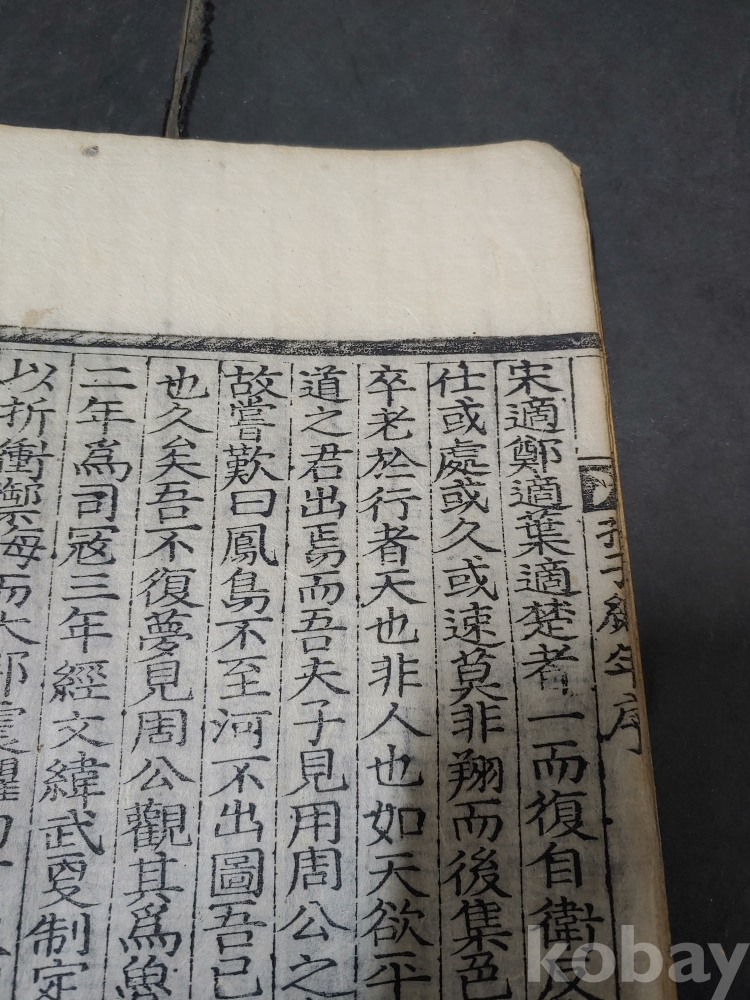 孔子編年序
宋適鄭適葉適楚者一而復自衛反
仕或處或久或速莫非翔而後集色
卒老於行者天也非人也如天欲平
道之君出焉而吾夫子見用周公之
故嘗歎曰鳳鳥不至河不出圖吾已
也久矣吾不復夢見周公觀其爲魯
二年爲司寇三年經文緯武更制定
以折衝禦侮而大
kobay